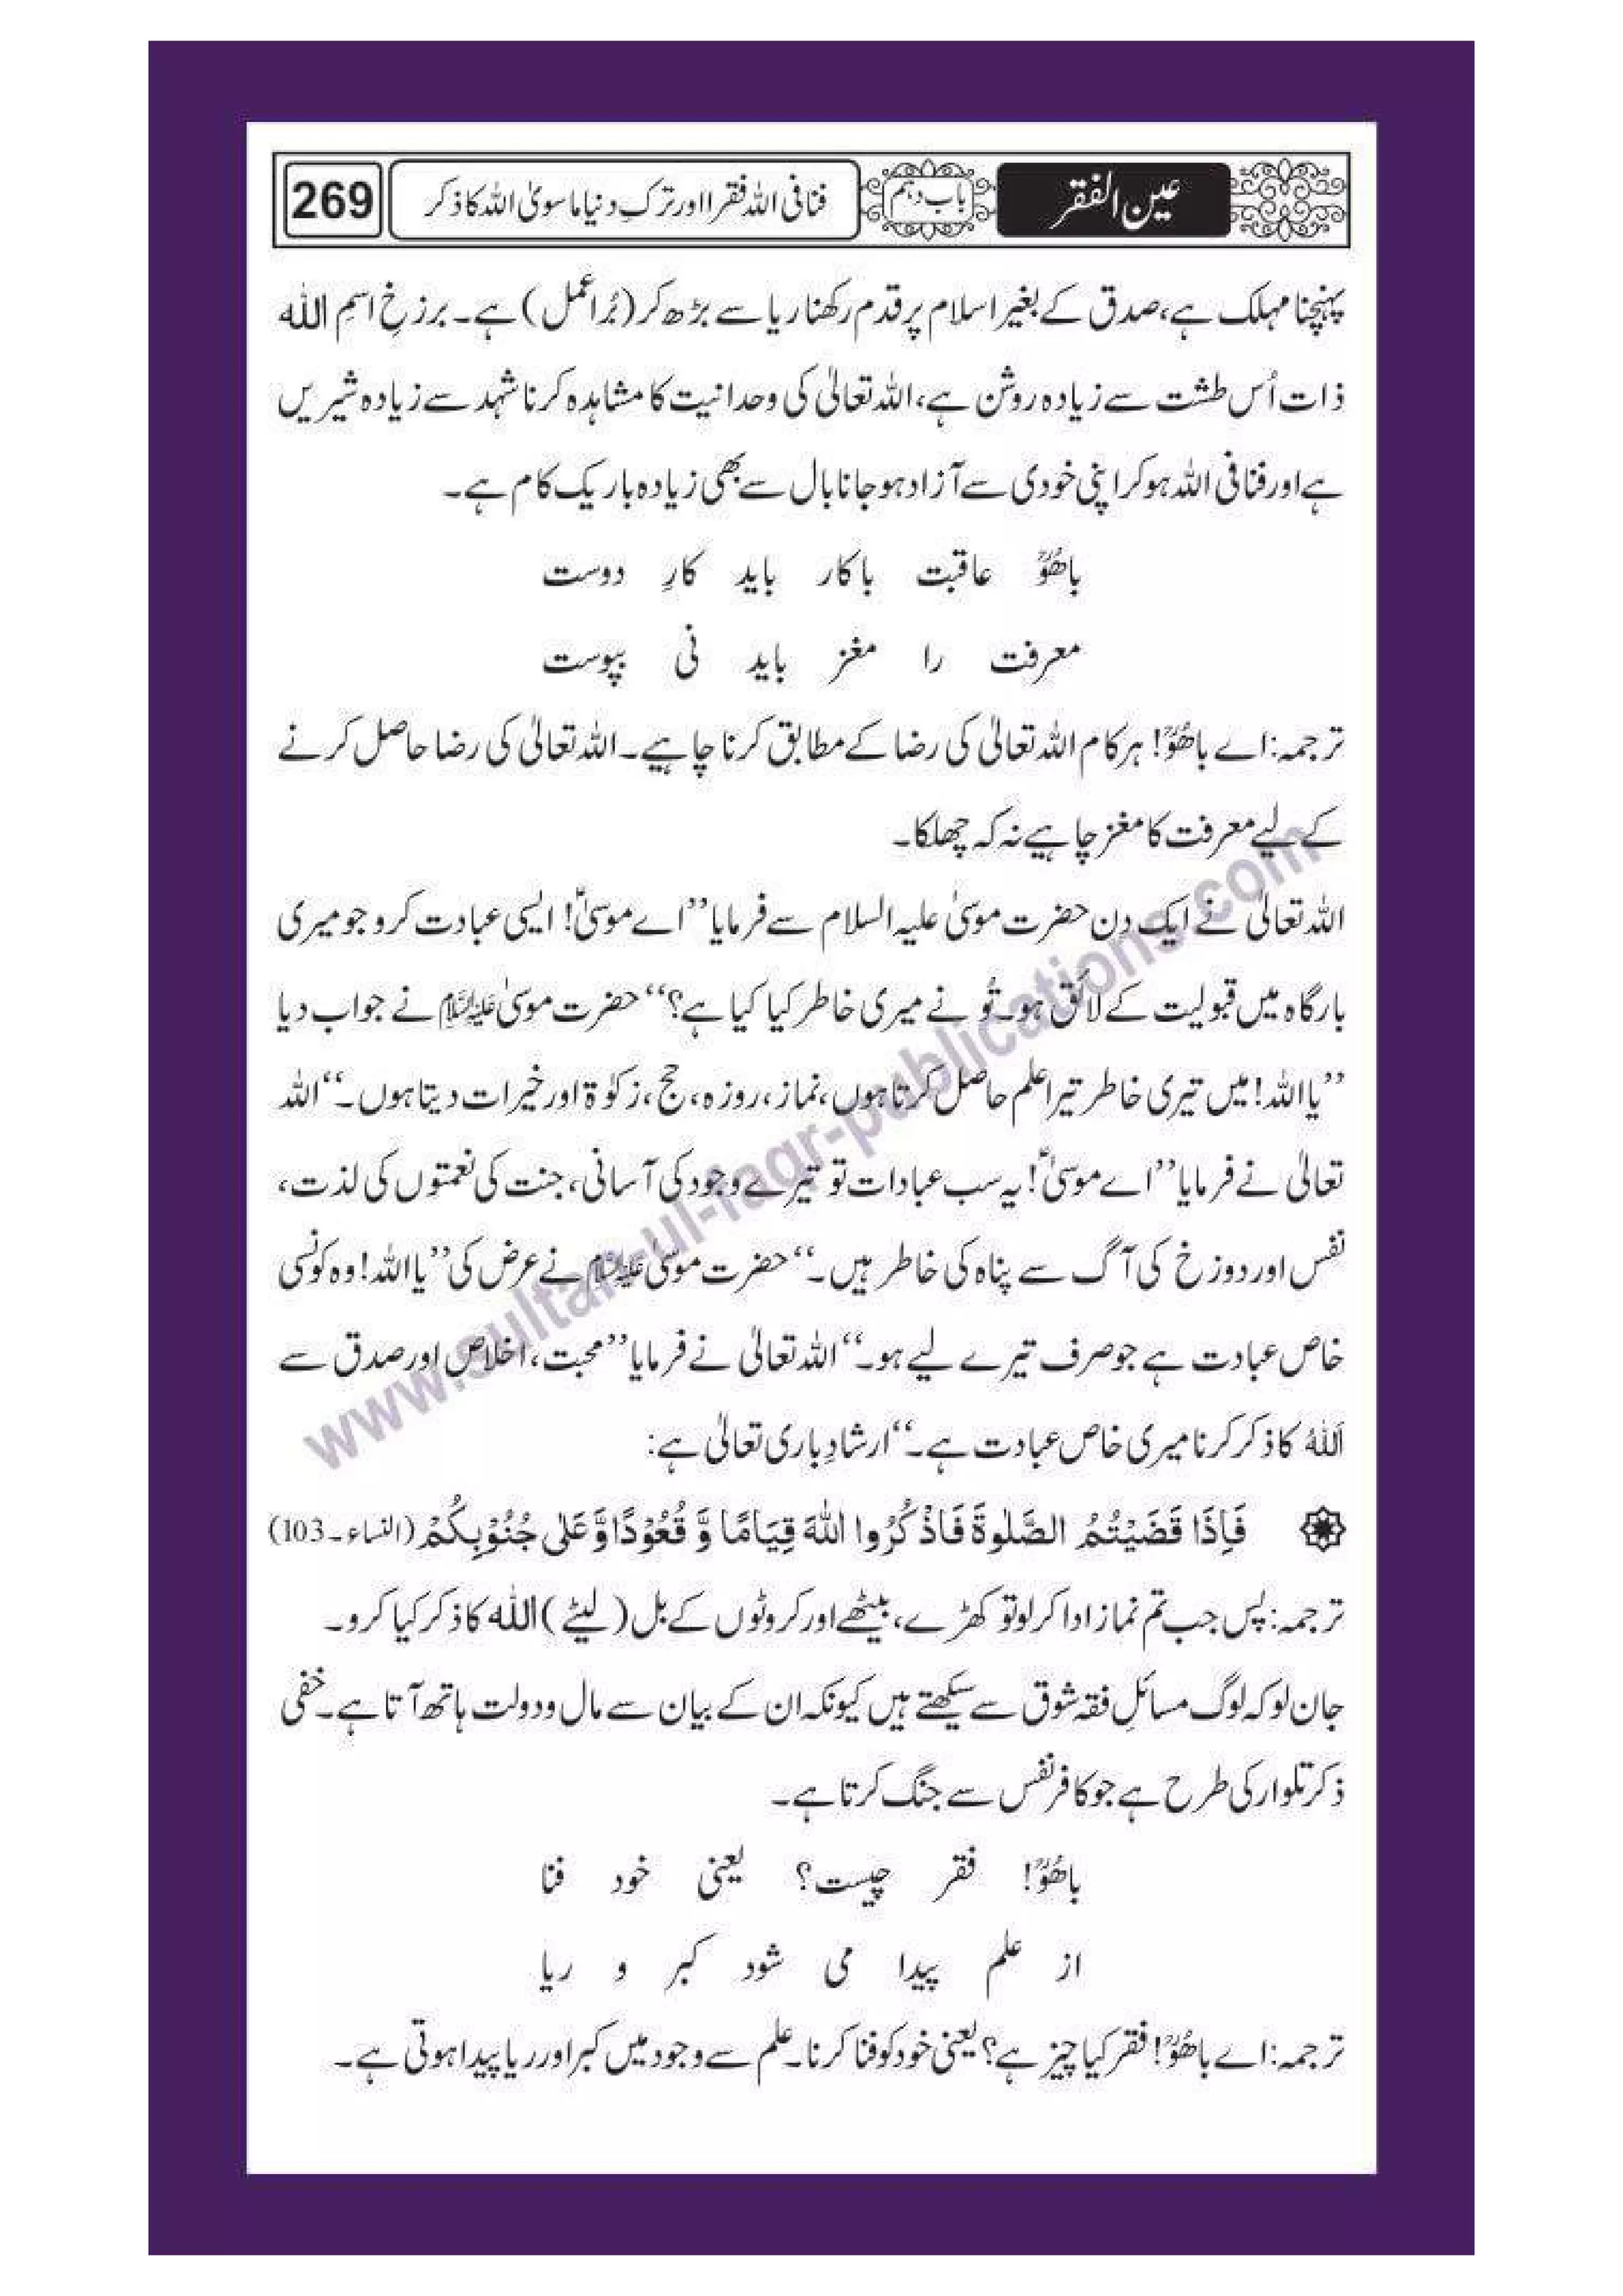 عین الفقر باب دہم فنا فی اللہ فقرا اور ترکِ دنیا ما سویٰ اللہ کا ذکر 269
پہنچنا مہلک ہے، صدق کے بغیر اسلام پر قدم رکھنا ریا سے بڑھ کر (بُرا عمل) ہے۔ برزخِ اسمِ اللہ
ذات اُس طشت سے زیادہ روشن ہے، اللہ تعالیٰ کی وحدانیت کا مشاہدہ کرنا شہد سے زیادہ شیریں
ہے اور فنا فی اللہ ہو کر اپنی خودی سے آزاد ہو جانا بال سے بھی زیادہ باریک کام ہے۔
باھُوؒ عاقبت باکار باید کارِ دوست
معرفت را مغز باید نی بپوست
ترجمہ: اے باھُوؒ! ہر کام اللہ تعالیٰ کی رضا کے مطابق کرنا چاہیے۔ اللہ تعالیٰ کی رضا حاصل کرنے
کے لیے معرفت کا مغز چاہیے نہ کہ چھلکا۔
اللہ تعالیٰ نے ایک دن حضرت موسیٰ علیہ السلام سے فرمایا ”اے موسیٰؑ! ایسی عبادت کرو جو میری
بارگاہ میں قبولیت کے لائق ہو۔ تُو نے میری خاطر کیا کیا ہے؟“ حضرت موسیٰ علیہ السلام نے جواب دیا
”یا اللہ! میں تیری خاطر تیرا علم حاصل کرتا ہوں، نماز، روزہ، حج، زکوٰۃ اور خیرات دیتا ہوں۔“ اللہ
تعالیٰ نے فرمایا ”اے موسیٰؑ! یہ سب عبادات تو تیرے وجود کی آسانی، جنت کی نعمتوں کی لذت،
نفس اور دوزخ کی آگ سے پناہ کی خاطر ہیں۔“ حضرت موسیٰ علیہ السلام نے عرض کی ”یا اللہ! وہ کونسی
خاص عبادت ہے جو صرف تیرے لیے ہو۔“ اللہ تعالیٰ نے فرمایا ”محبت، اخلاص اور صدق سے
اَللّٰہُ کا ذکر کرنا میری خاص عبادت ہے۔“ ارشادِ باری تعالیٰ ہے:
فَاِذَا قَضَیْتُمُ الصَّلٰوۃَ فَاذْکُرُوا اللّٰہَ قِیَامًا وَّ قُعُوْدًا وَّ عَلٰی جُنُوْبِکُمْ (النساء۔103)
ترجمہ: پس جب تم نماز ادا کر لو تو کھڑے، بیٹھے اور کروٹوں کے بل (لیٹے) اللہ کا ذکر کیا کرو۔
جان لو کہ لوگ مسائلِ فقہ شوق سے سیکھتے ہیں کیونکہ ان کے بیان سے مال و دولت ہاتھ آتا ہے۔ خفی
ذکر تلوار کی طرح ہے جو کافر نفس سے جنگ کرتا ہے۔
باھُوؒ! فقر چیست؟ یعنی خود فنا
از علم پیدا می شود کبر و ریا
ترجمہ: اے باھُوؒ! فقر کیا چیز ہے؟ یعنی خود کو فنا کرنا۔ علم سے وجود میں کبر اور ریا پیدا ہوتی ہے۔
www.sultan-ul-faqr-publications.com